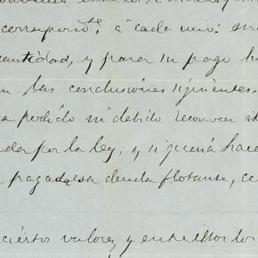 corresponte. á cada uno: su
cantidad, y para su pago h
n las conclusiones siguientes.
podido ni debido reconocer
da por la ley; y si quería hace
pagada esta deuda flotante, ce
ciertos valores y entre ellos los